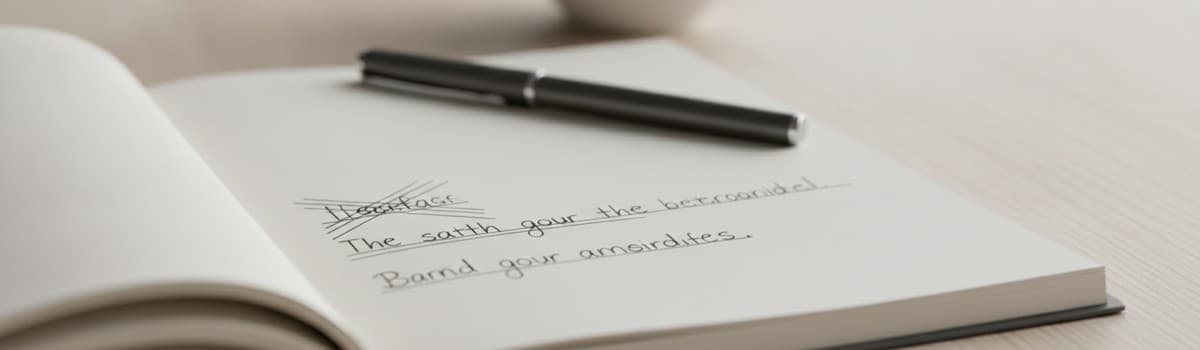 The satth gour the betsroanidel.
Barnd gour amsirdifes.